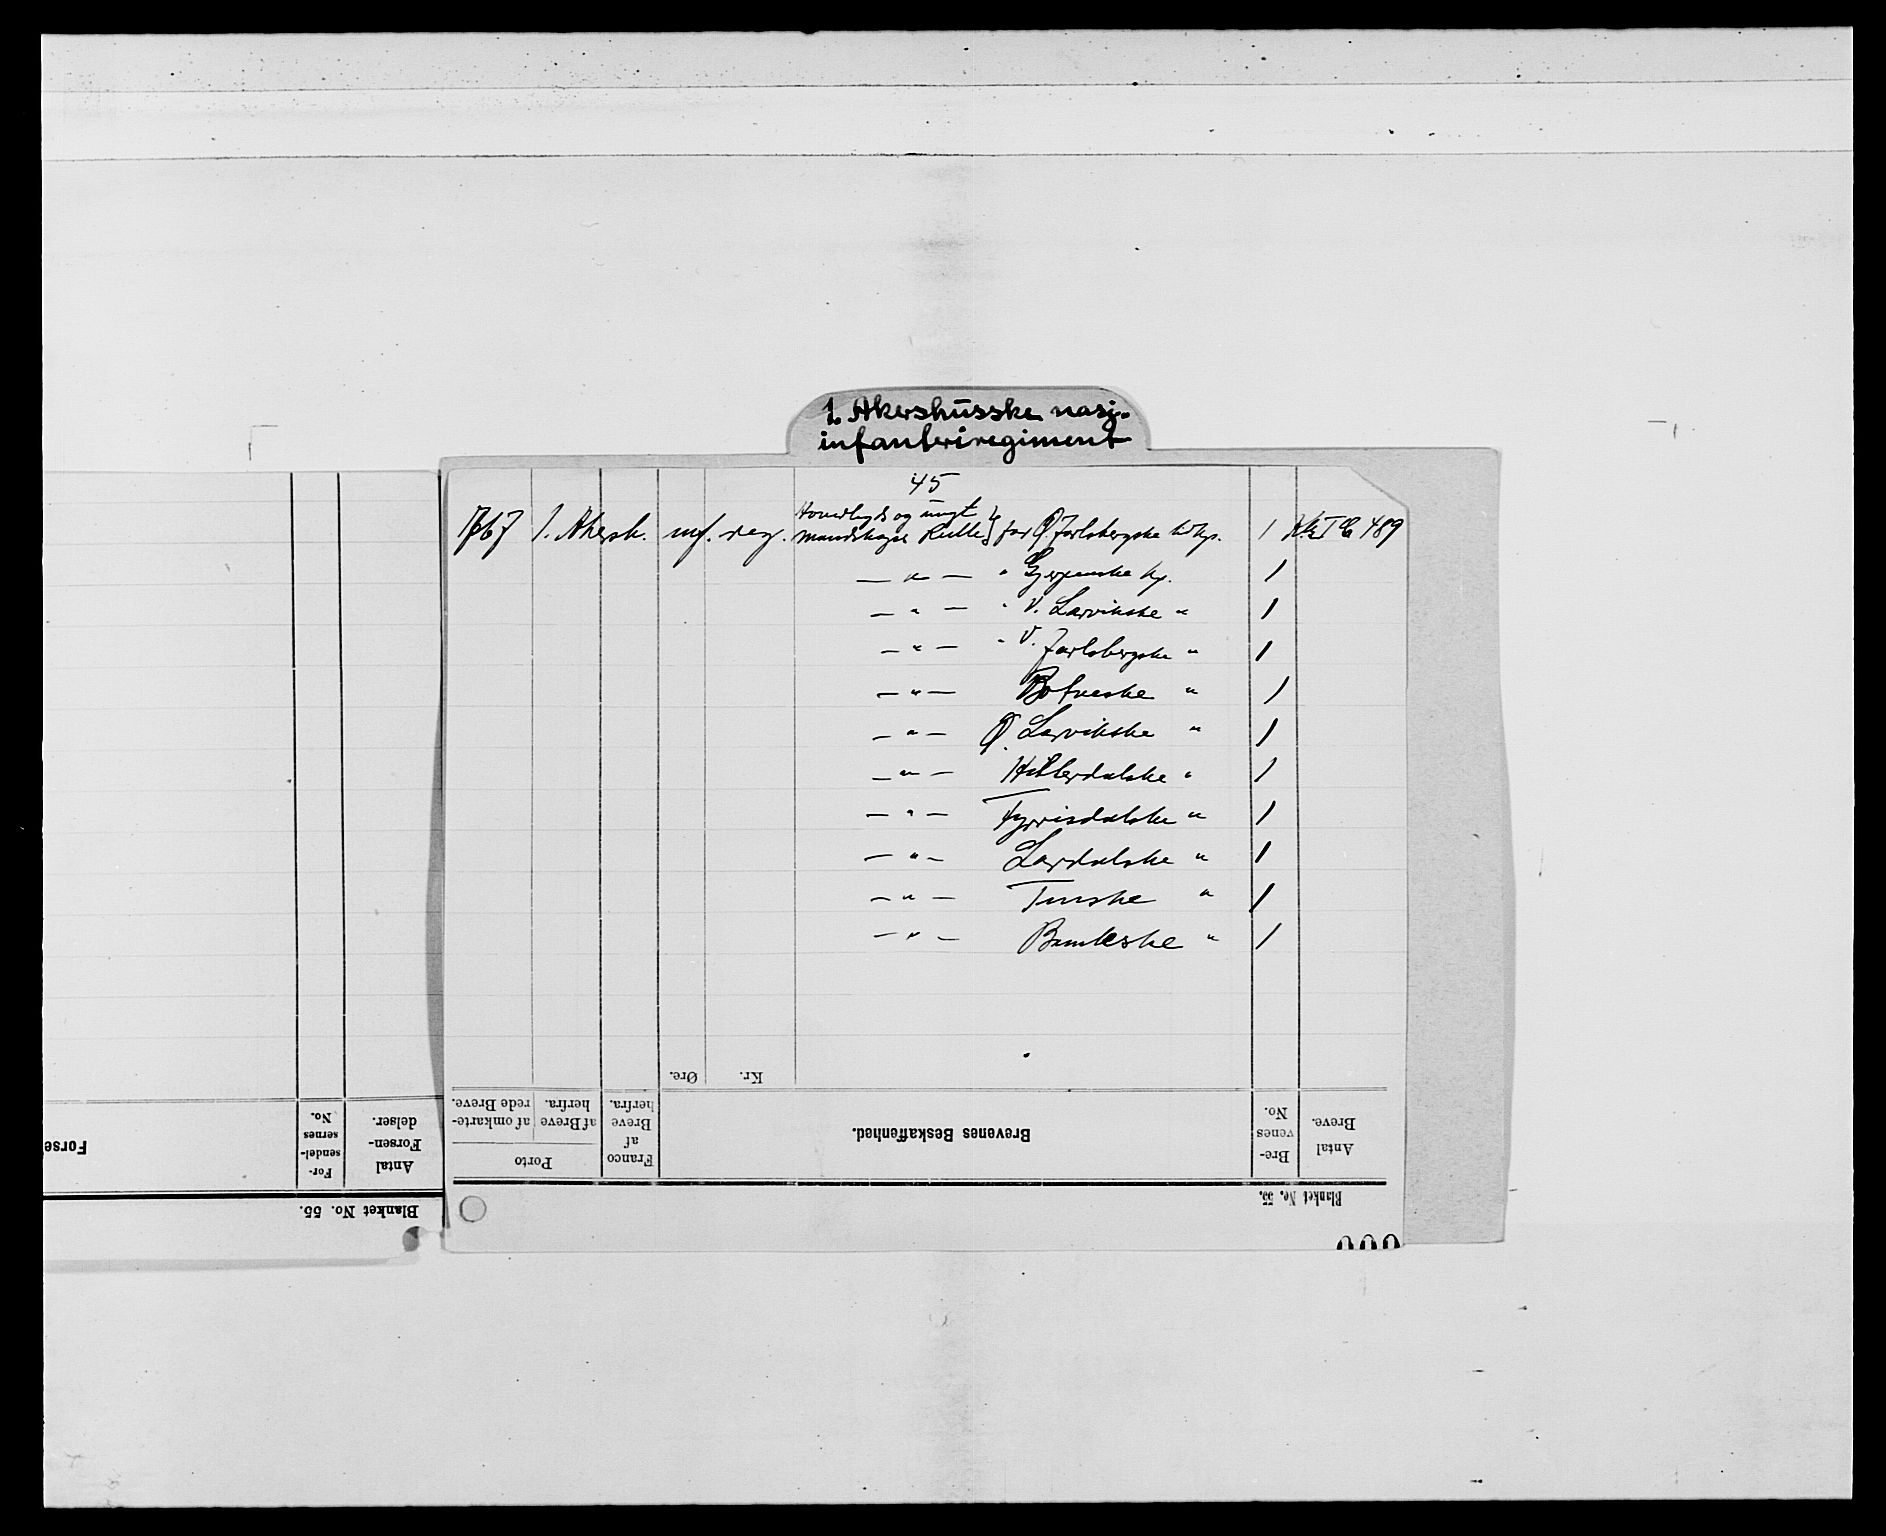 1. Akershusske nasj.
infanteriregiment
45
1767 1. Akersh. inf. reg. Hovedlyds og ungt mandskaps Rulle for Ø. Jarlsbergske kp. 1 489
— " — " Gjerpenske kp. 1
— " — " V. Larvikske " 1
— " — " V. Jarlsbergske " 1
— " — Bøfneske " 1
— " — Ø. Larvikske " 1
— " — Hitlerdalske " 1
— " — Tyrrisdalske " 1
— " — Lardalske " 1
— " — Tinske " 1
— " — Bambleske " 1
Blanket No. 55.
Antal Breve.
Brevenes No.
Brevenes Beskaffenhed.
Kr. Øre.
Franco af Breve herfra.
Porto
af Breve herfra.
af omkarterede Breve.
Blanket No. 55.
Antal Forsendelser.
Forsendelsernes No.
Forse